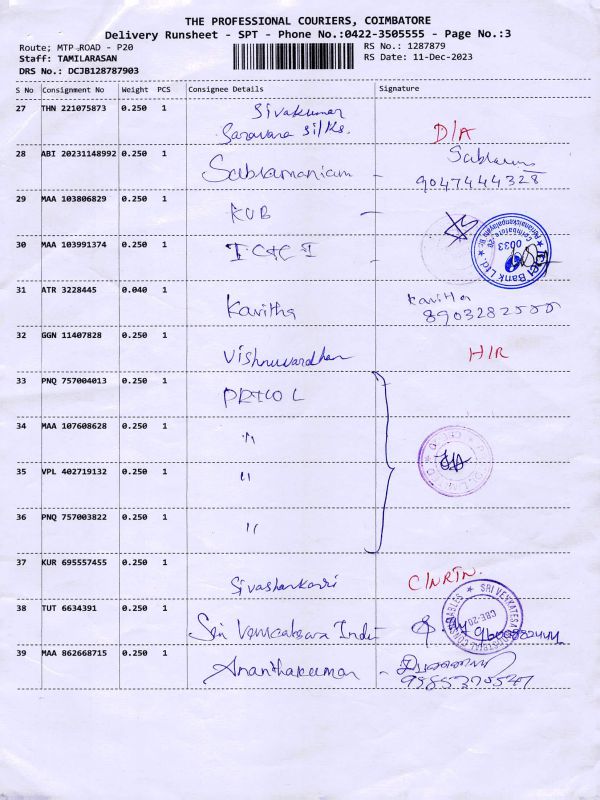 THE PROFESSIONAL COURIERS, COIMBATORE
Delivery Runsheet - SPT - Phone No.:0422-3505555 - Page No.:3
Route; MTP ROAD - P20
RS No.: 1287879
Staff: TAMILARASAN
RS Date: 11-Dec-2023
DRS No.: DCJB128787903
S No Consignment No Weight PCS Consignee Details Signature
27 THN 221075873 0.250 1 Sivakumar
Saravana silks. D/A
28 ABI 20231148992 0.250 1 Subramanium -
9047444328
29 MAA 103806829 0.250 1 KUB -
30 MAA 103991374 0.250 1 ICICI
31 ATR 3228445 0.040 1 Kavitha Kavitha
32 GGN 11407828 0.250 1 Vishnuvardhan H/R
33 PNQ 757004013 0.250 1 PRICOL
34 MAA 107608628 0.250 1 "
35 VPL 402719132 0.250 1 "
36 PNQ 757003822 0.250 1 "
37 KUR 695557455 0.250 1 Sivashankari C/NRTN.
38 TUT 6634391 0.250 1 Sri
39 MAA 862668715 0.250 1 Ananthakumar -